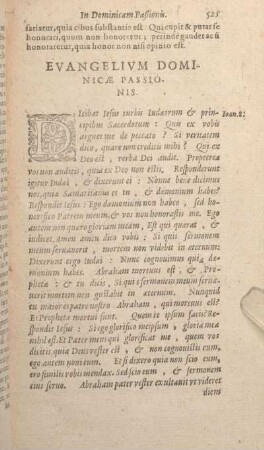 In Dominicam Passionis. 525
satiatur, quia cibus substantia est. Qui cupit & putat se
honorari, quum non honoretur; perinde gaudet ac si
honoraretur, quia honor non nisi opinio est.
EVANGELIVM DOMI-
NICÆ PASSIO-
NIS.
Dicebat Iesus turbis Iudæorum & prin-
cipibus Sacerdotum: Quis ex vobis
arguet me de peccato? Si veritatem
dico, quare non creditis mihi? Qui ex
Deo est, verba Dei audit. Propterea
vos non auditis, quia ex Deo non estis. Responderunt
igitur Iudæi, & dixerunt ei: Nonne bene dicimus
nos, quia Samaritanus es tu, & demonium habes?
Respondit Iesus: Ego dæmonium non habeo, sed ho-
norifico Patrem meum, & vos non honorastis me. Ego
autem non quæro gloriam meam, Est qui quærat, &
iudicet. Amen amen dico vobis, Si quis sermonem
meum seruauerit, mortem non videbit in æternum:
Dixerunt ergo Iudæi: Nunc cognouimus quia dæ-
monium habes. Abraham mortuus est, & Pro-
phetæ: & tu dicis, Si quis sermonem meum serua-
uerit mortem non gustabit in æternum. Nunquid
tu maior es patre nostro Abraham, qui mortuus est?
Et Prophetæ mortui sunt. Quem te ipsum facis? Re-
spondit Iesus: Si ego glorifico meipsum, gloria mea
nihil est. Et Pater meus qui glorificat me, quem vos
dicitis quia Deus vester est, & non cognouistis eum,
ego autem noui eum. Et si dixero quia non scio eum,
ero similis vobis mendax. Sed scio eum, & sermonem
eius seruo. Abraham pater vester exultauit vt videret
diem
Ioan. 8.